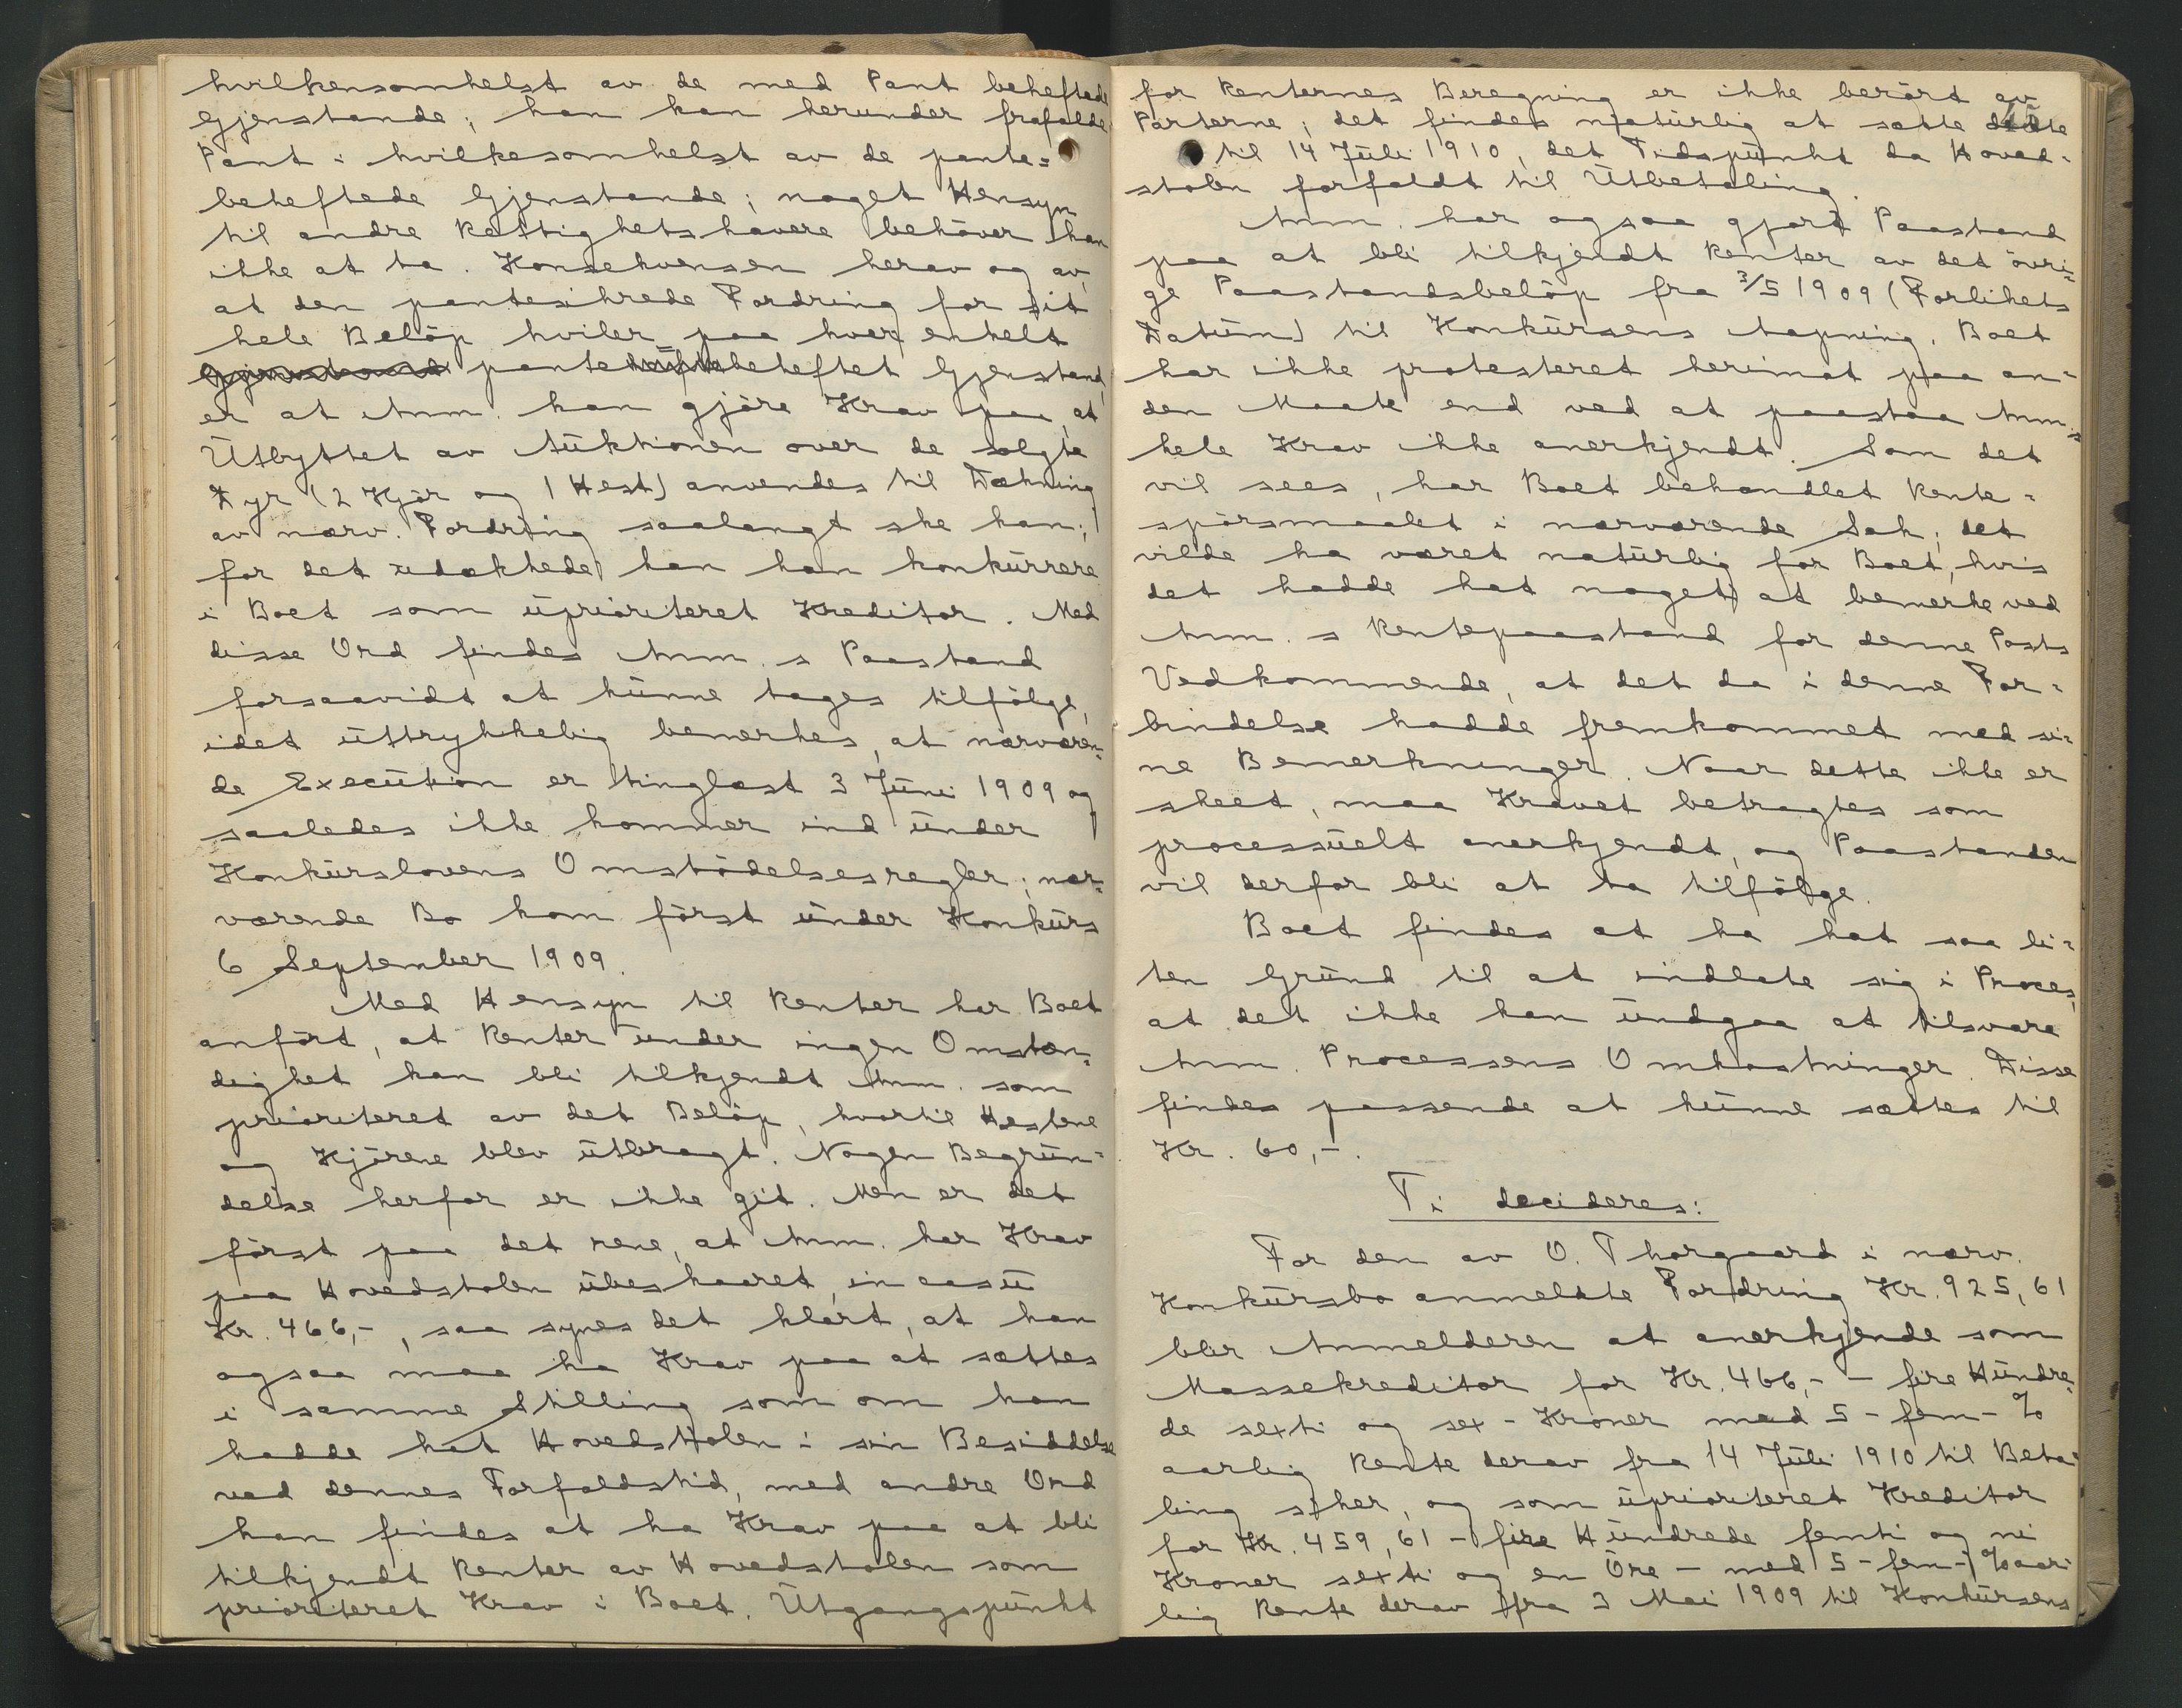 hvilkensomhelst av de med Pant beheftede
Gjenstande; han kan herunder frafalde
Pant i hvilkesomhelst av de pante=
beheftede Gjenstande; noget Hensyn
til andre Rettighetshavere behöver han
ikke at ta. Konsekvensen herav og av,
at den pantesikrede Fordring for sit
hele Belöp hviler paa hver enkelt
Gjenstand pantebeheftet Gjenstand,
er at Anm. kan gjöre Krav paa, at
Utbyttet av Auktionen over de solgte
Dyr (2 Kjör og 1 Hest) anvendes til Dækning
av nærv. Fordring saalangt ske kan;
for det udækkede kan han konkurrere
i Boet som uprioriteret Kreditor. Med
disse Ord findes Anm.s Paastand
forsaavidt at kunne tages tilfölge,
idet uttrykkelig bemerkes, at nærværen=
de Execution er tinglæst 3 Juni 1909 og
saaledes ikke kommer ind under
Konkurslovens Omstödelsesregler; nær=
værende Bo kom först under Konkurs
6 September 1909.
Med Hensyn til Renter har Boet
anfört, at Renter under ingen Omstæn=
dighet kan bli tilkjendt Anm. som
prioriteret av det Belöp, hvortil Hestene
og Kjörene blev utbragt. Nogen Begrun=
delse herfor er ikke git. Men er det
först paa det rene, at Anm. har Krav
paa Hovedstolen ubeskaaret, in casu
Kr. 466,-, saa synes det klart, at han
ogsaa maa ha Krav paa at sættes
i samme Stilling som om han
hadde hat Hovedstolen i sin Besiddelse
ved dennes Forfaldstid, med andre Ord
han findes at ha Krav paa at bli
tilkjendt Renter av Hovedstolen som
prioriteret Krav i Boet. Utgangspunkt
for Renternes Beregning er ikke berört av
Parterne; det findes naturlig at sætte dette
til 14 Juli 1910, det Tidspunkt da Hoved=
stolen forfaldt til Utbetaling.
Anm. har ogsaa gjort Paastand
paa at bli tilkjendt Renter av det övri=
ge Paastandsbelöp fra 3/5 1909 (Forlikets
Datum) til Konkursens Aapning. Boet
har ikke protesteret herimot paa an=
den Maate end ved at paastaa Anm.s
hele Krav ikke anerkjendt. Som det
vil sees, har Boet behandlet Rente=
spörsmaalet i nærværende Sak; det
vilde ha været naturlig for Boet, hvis
det hadde hat noget at bemerke ved
Anm.s Rentepaastand for denne Posts
Vedkommende, at det da i denne For=
bindelse hadde fremkommet med si=
ne Bemerkninger. Naar dette ikke er
skeet, maa Kravet betragtes som
processuelt anerkjendt, og Paastanden
vil derfor bli at ta tilfölge.
Boet findes at ha hat saa li=
ten Grund til at indlate sig i Proces,
at det ikke kan undgaa at tilsvare
Anm. Processens Omkostninger. Disse
findes passende at kunne sættes til
Kr. 60,-.
Ti decideres:
For den av O. Thorgaard i nærv.
Konkursbo anmeldte Fordring Kr. 925,61
blir Anmelderen at anerkjende som
Massekreditor for Kr. 466,- - fire Hundre=
de sexti og sex - Kroner med 5 - fem - %
aarlig Rente derav fra 14 Juli 1910 til Beta=
ling sker, og som uprioriteret Kreditor
for Kr. 459,61 - fire Hundrede femti og ni
Kroner sexti og en Öre - med 5 - fem - % aar=
lig Rente derav fra 3 Mai 1909 til Konkursens